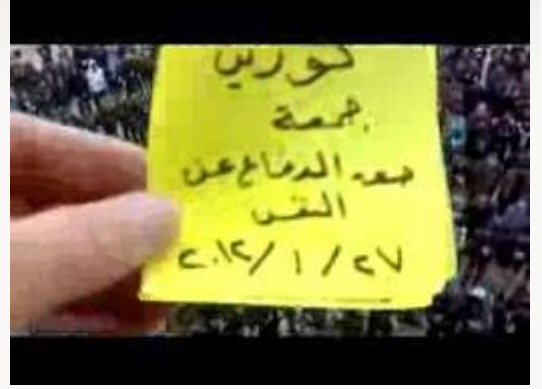 كورين
جمعة
حق الدفاع عن
النفس
٢٠١٢/١/٢٧